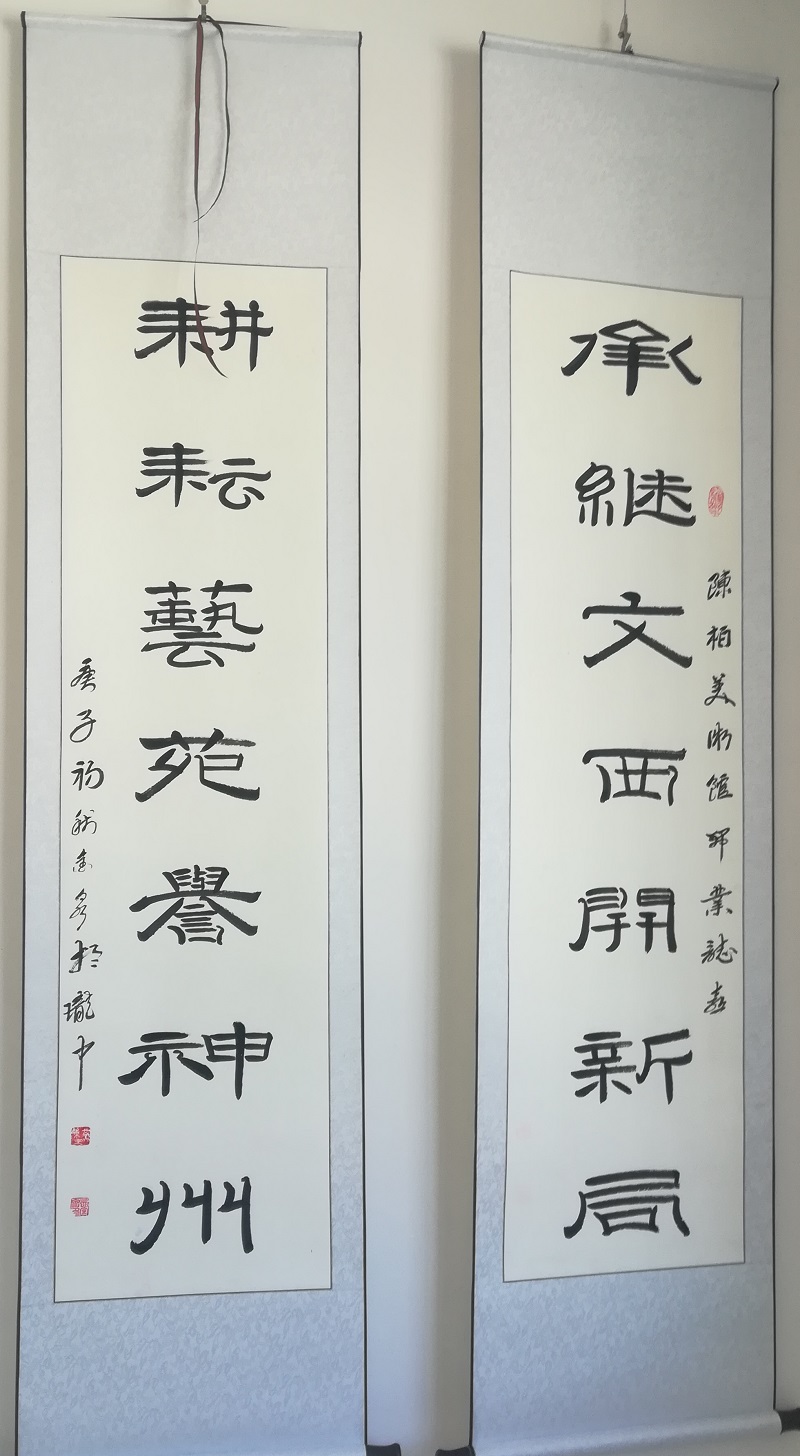 陳柏美術館開業誌喜
承継文西開新局
耕耘藝苑譽神州
庚子初秋於隴中